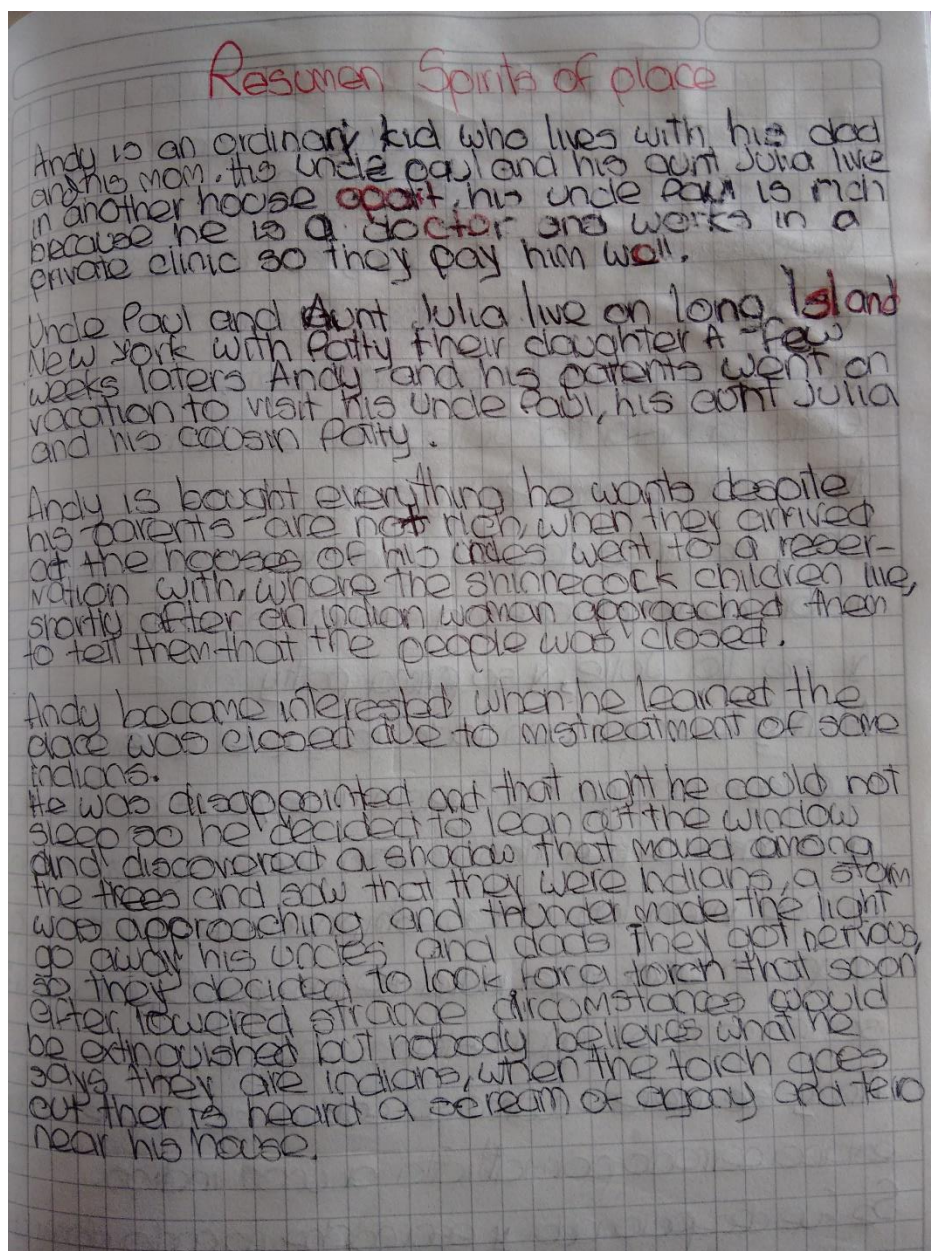 Resumen Spirits of place
Andy is an ordinary kid who lives with his dad
and his mom. His uncle paul and his aunt Julia live
in another house apart, his uncle Paul is rich
because he is a doctor and works in a
private clinic so they pay him well.
Uncle Paul and Aunt Julia live on long Island
New york with Patty their daughter A few
weeks laters Andy and his parents went on
vacation to visit his uncle Paul, his aunt Julia
and his cousin Patty.
Andy is bought everything he wants despite
his parents are not rich, when they arrived
at the houses of his uncles went to a reser-
vation with, where the shinnecock children live,
shortly after an indian woman approached them
to tell them that the people was closed.
Andy became interested when he learnet the
place was closed due to mistreatment of some
indians.
He was disappointed and that night he could not
sleep so he decided to lean out the window
and discovered a shadow that moved among
the trees and saw that they were indians, a storm
was approaching and thunder made the light
go away his uncles and dads they got nervous,
so they decided to look for a torch that soon
after, lowered strange circumstances would
be extinguished but nobody believes what he
says they are indians, when the torch goes
out ther is heard a scream of agony and
near his house.